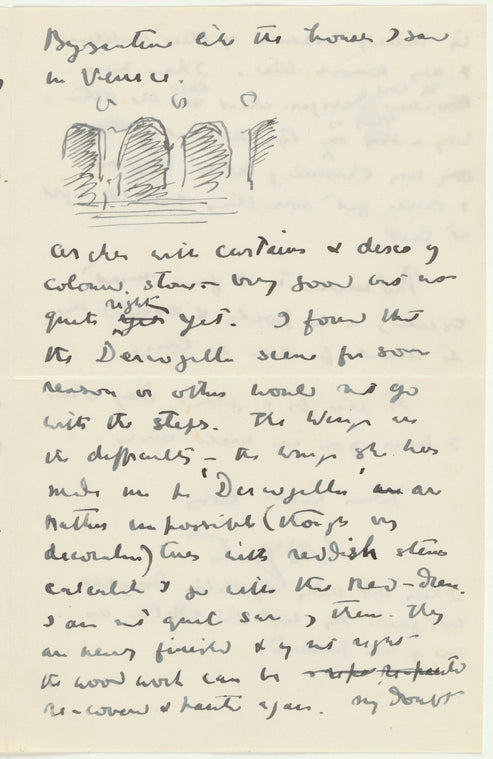 Byzantine like the houses I saw
in Venice.
arches with curtains & discs of
colour. stone – very good but not
quite right yet. I found that
the Dervorgilla scene for some
reason or other would not go
with the steps. The Wings are
the difficulty – the wings she has
made me for 'Dervorgilla' are
rather impossible (though very
decorative) trees with reddish stems
calculated to go with the
I am not quite sure of them. They
are nearly finished & if not right
the wood work can be
re-covered & painted again. My doubt